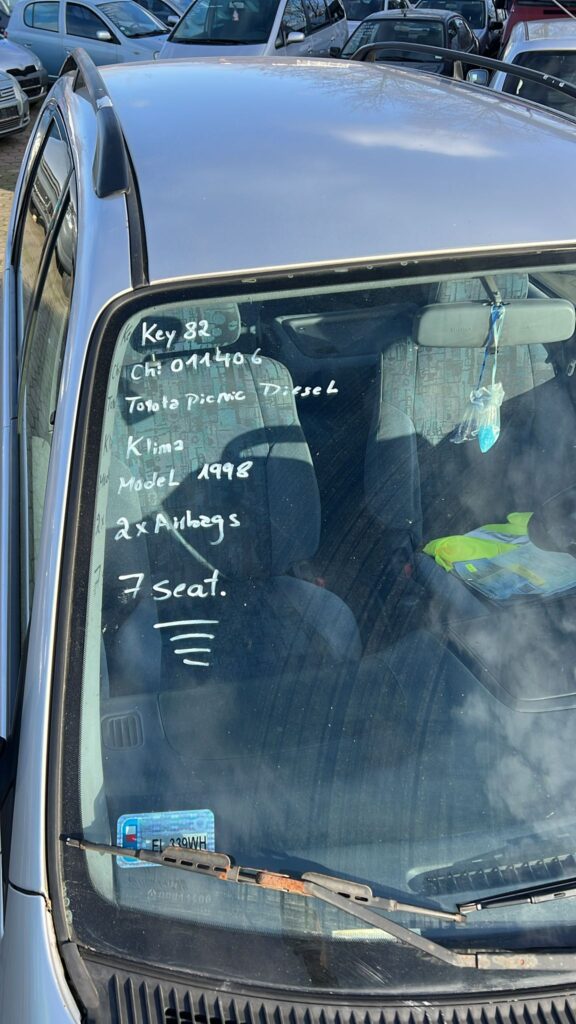 Key 82
Ch: 011406
Toyota picnic Diesel
Klima
Model 1998
2x Airbags
7 seat.
EL 339WH